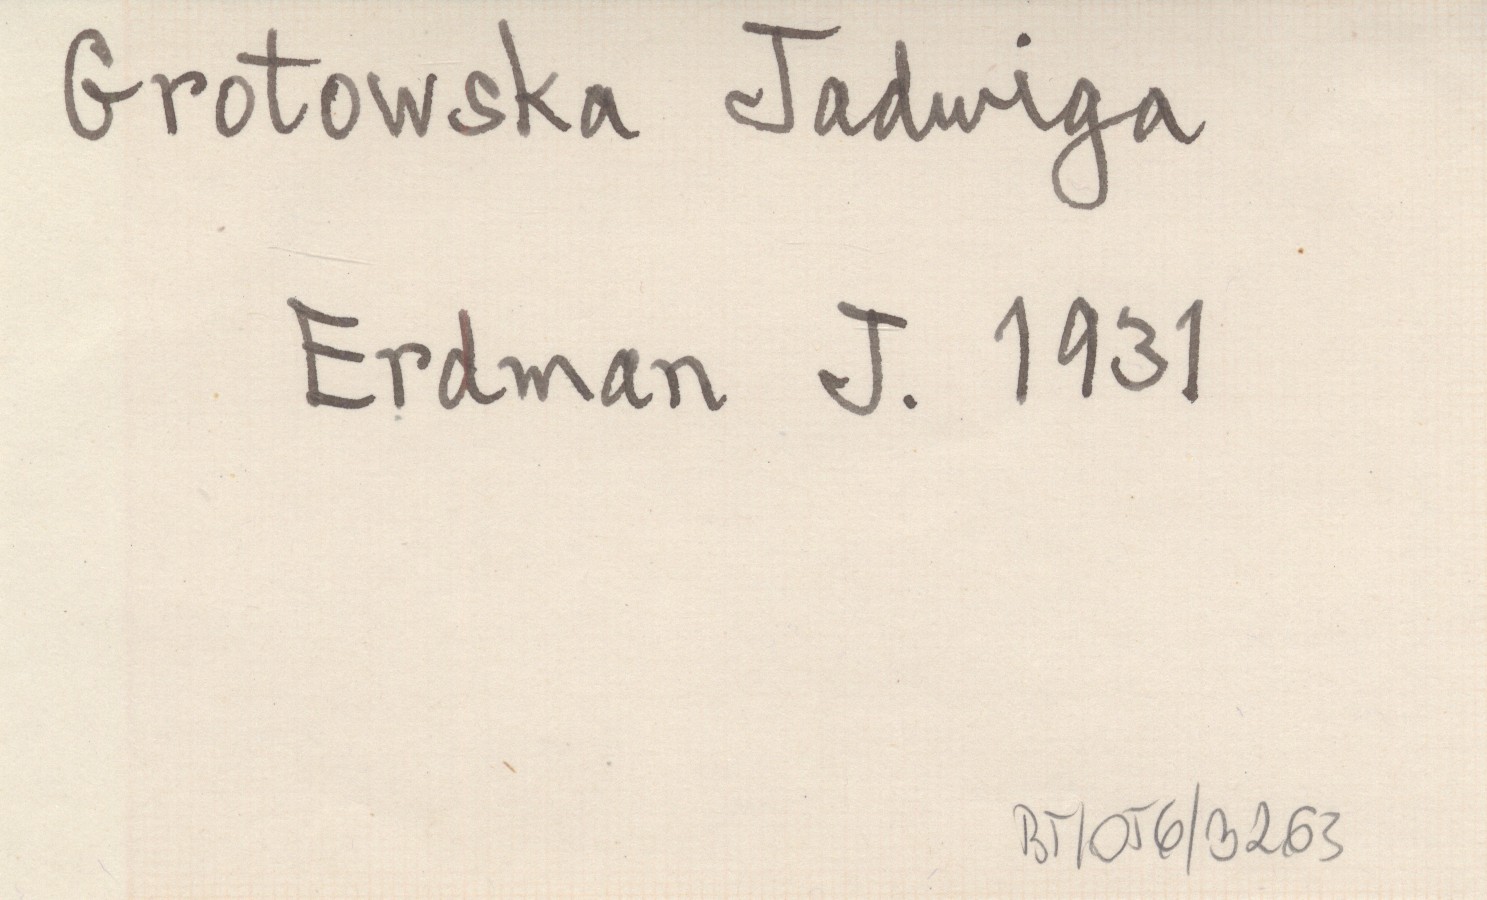 Grotowska Jadwiga
Erdman J. 1931
BT/OT6/3263